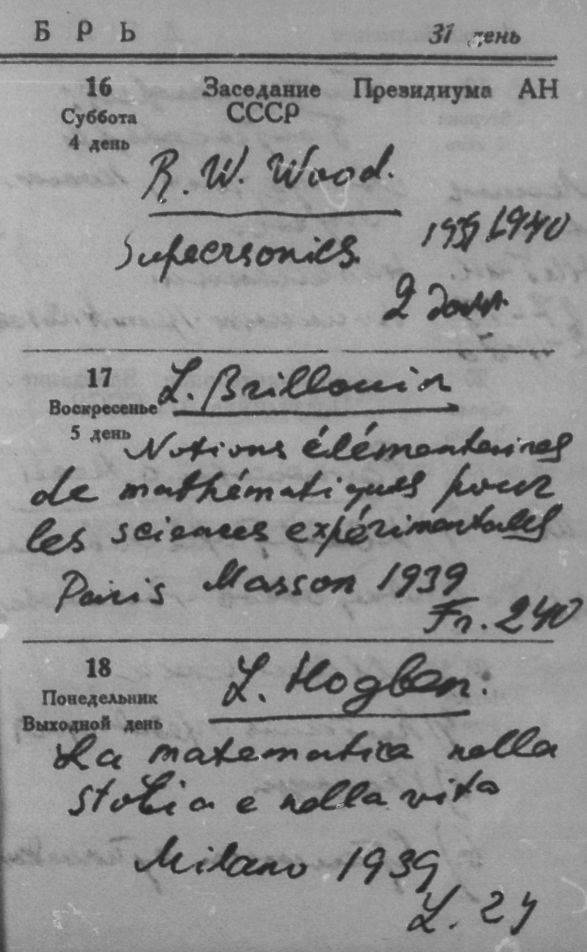 БРЬ 31 день
16 Заседание Президиума АН
Суббота СССР
4 день
R. W. Wood.
Supersonics 1939 1940
2
17 L. Brillouin
Воскресенье
5 день Notions élémentaires
de mathématiques pour
les sciences expérimentales
Paris Masson 1939
Fr. 240
18 L. Hogben.
Понедельник
Выходной день
La matematica nella
storia e nella vita
Milano 1939
L. 24